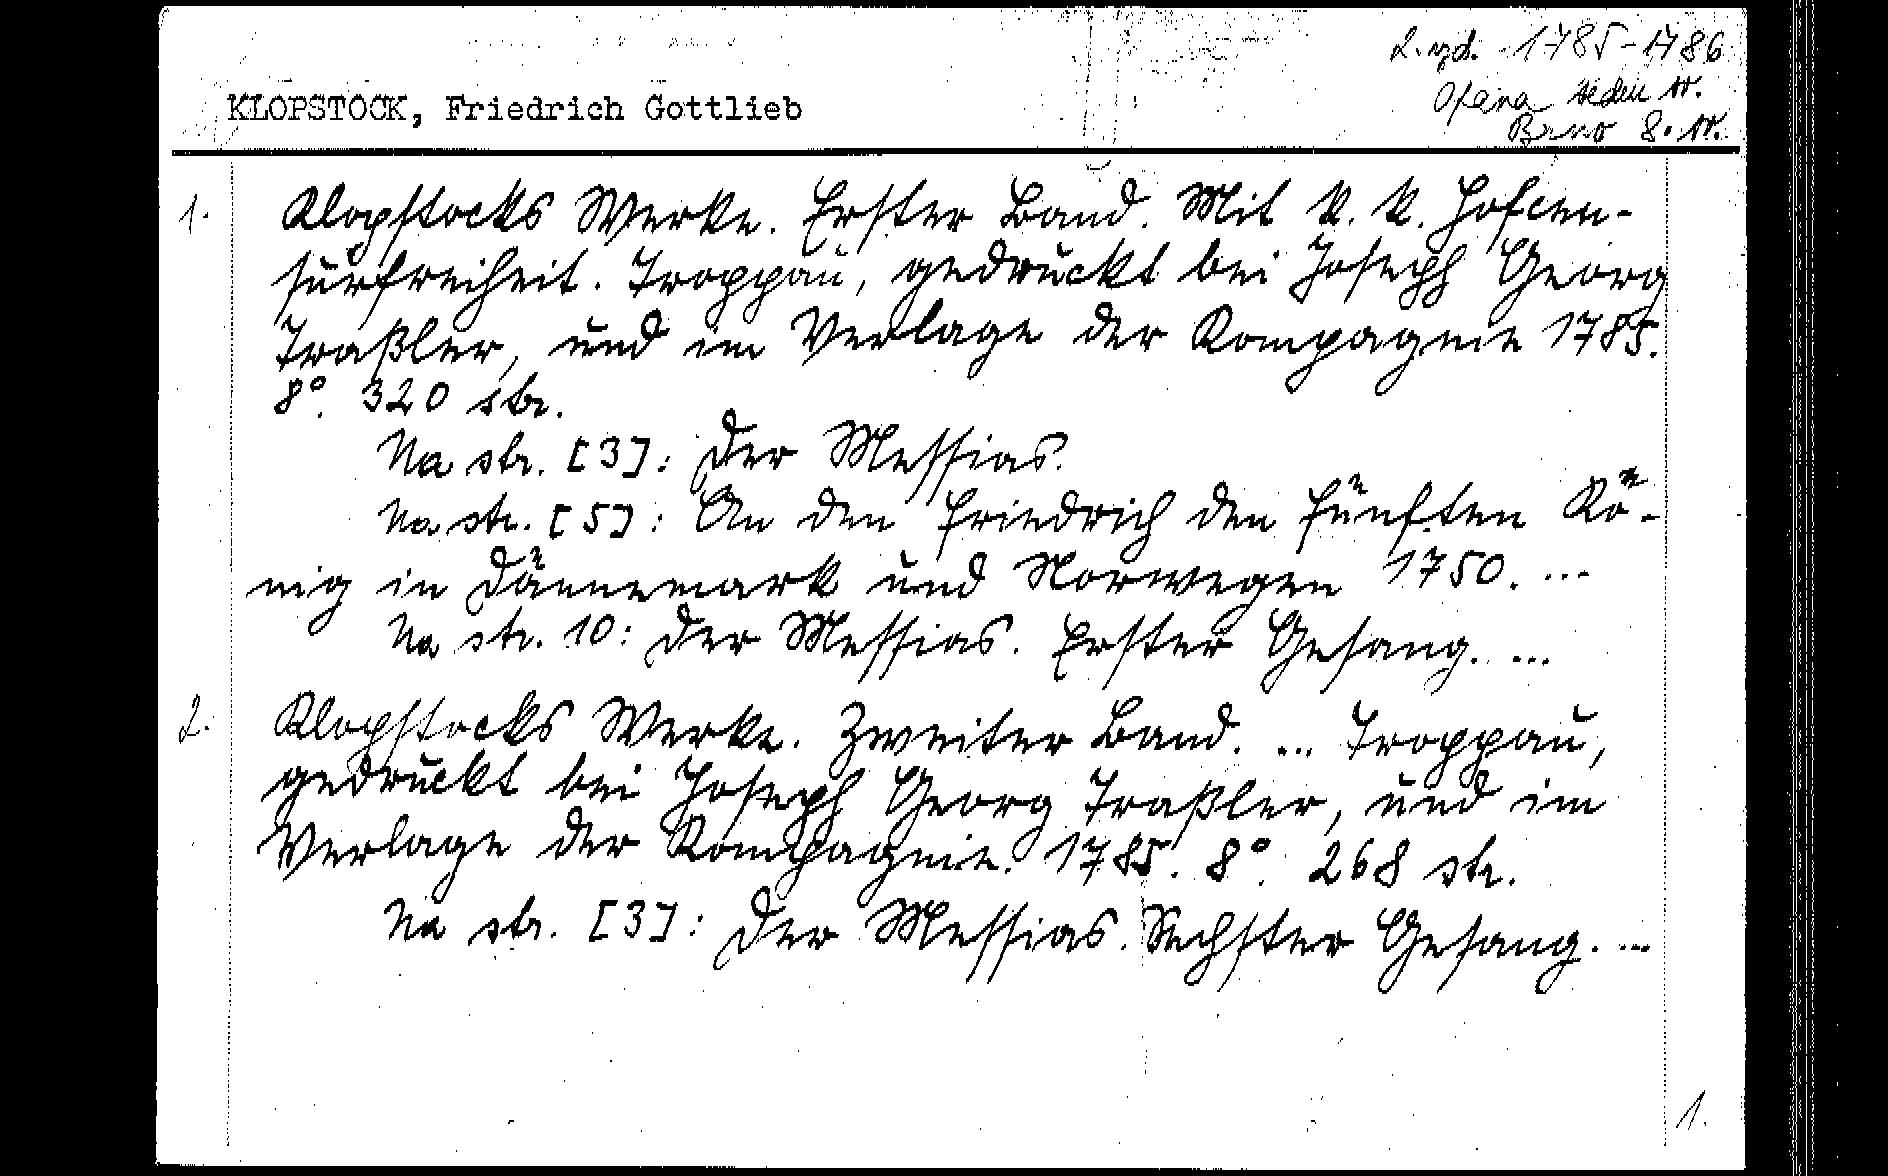 2. vyd. 1785-1786
Opava sedm sv.
Brno 8. sv.
KLOPSTOCK, Friedrich Gottlieb
1. Klopstocks Werke. Erster Band. Mit k. k. Hofcen-
surfreiheit. Troppau, gedruckt bei Joseph Georg
Traßler, und im Verlage der Kompagnie 1785.
8°. 320 str.
Na str. [3]: Der Messias.
Na str. [5]: An den Friedrich den Fünften Kö-
nig in Dännemark und Norwegen 1750. ...
Na str. 10: Der Messias. Erster Gesang. ...
2. Klopstocks Werke. Zweiter Band. ... Troppau,
gedruckt bei Joseph Georg Traßler, und im
Verlage der Kompagnie. 1785. 8°. 268 str.
Na str. [3]: Der Messias. Sechster Gesang. ...
1.